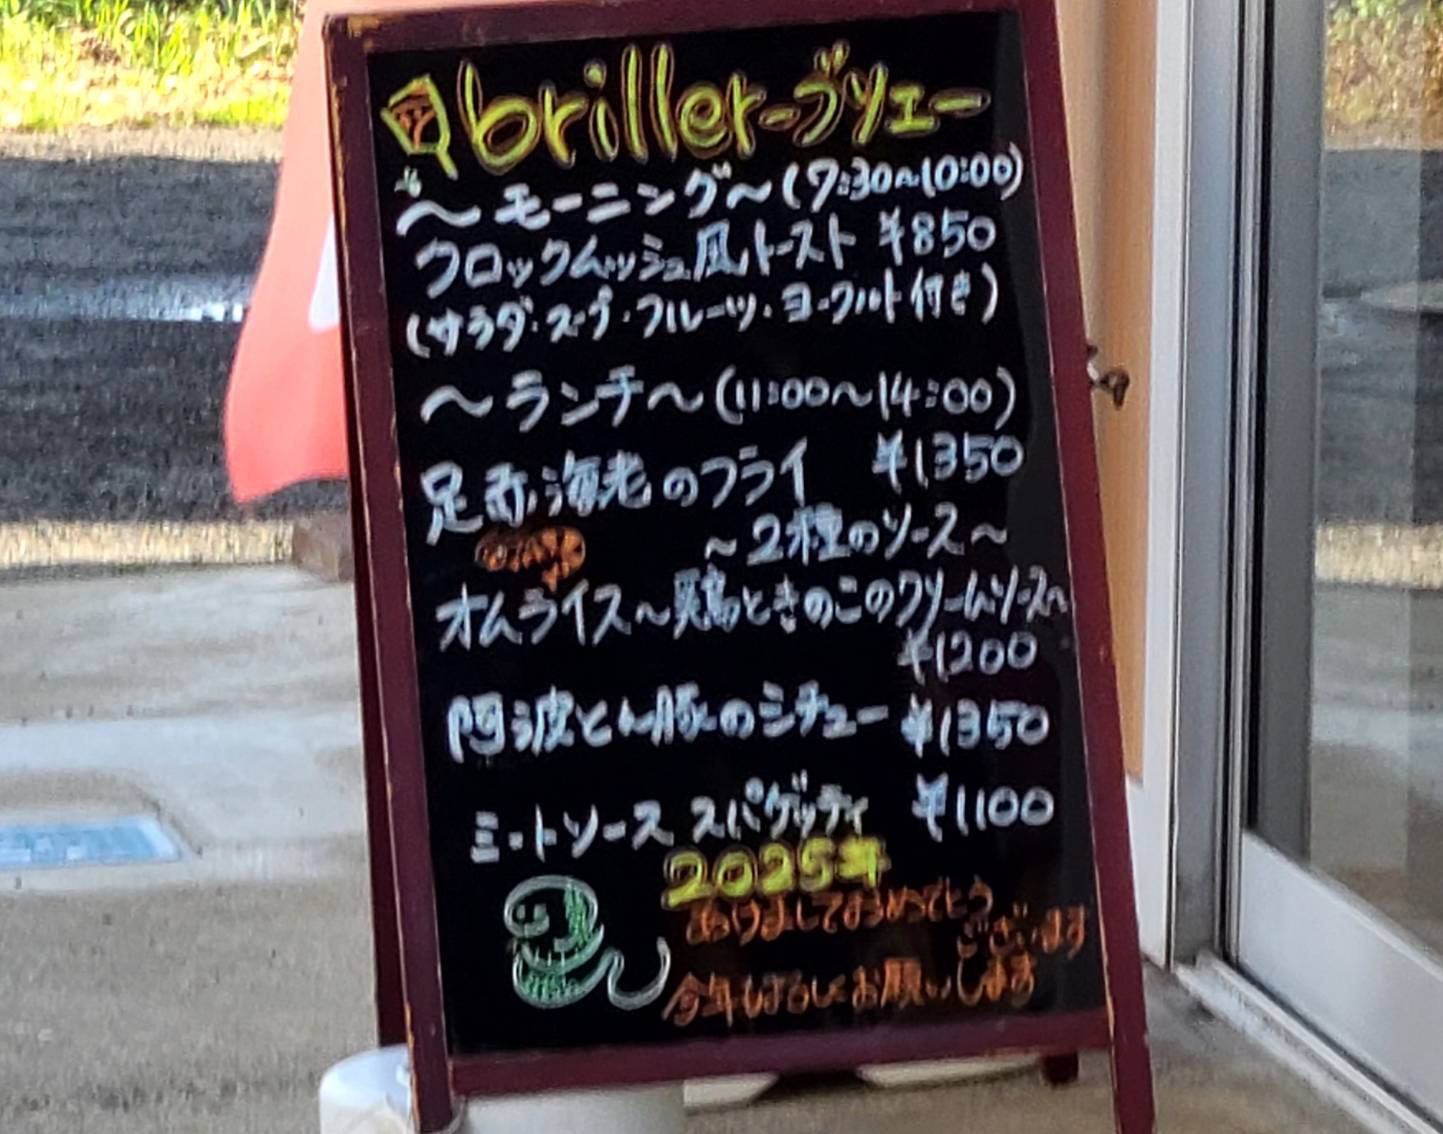 briller-ブリエー
〜モーニング〜(7:30〜10:00)
クロックムッシュ風トースト ¥850
(サラダ・スープ・フルーツ・ヨーグルト付き)
〜ランチ〜(11:00〜14:00)
足赤海老のフライ ¥1350
〜2種のソース〜
オムライス〜鶏ときのこのクリームソース〜
¥1200
阿波とん豚のシチュー ¥1350
ミートソース スパゲッティ ¥1100
2025年
あけましておめでとう
ございます
今年もよろしくお願いします